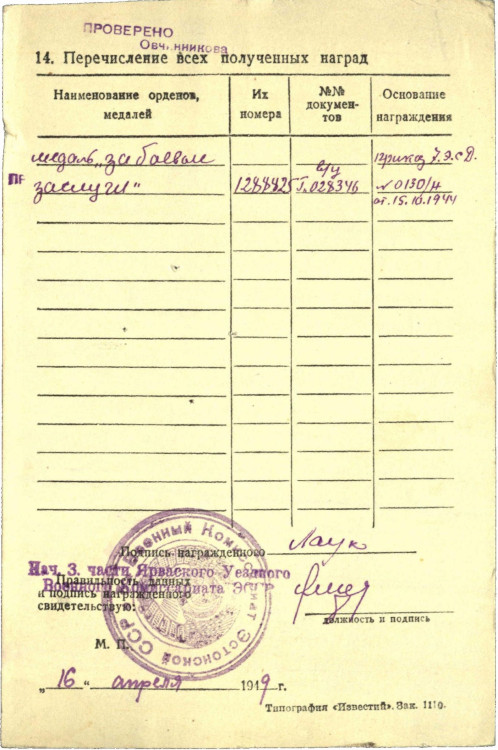 ПРОВЕРЕНО
Овчинникова
14. Перечисление всех полученных наград
Наименование орденов, медалей
Их номера
№№ документов
Основание награждения
медаль "за боевые
заслуги"
1288825
в/ц
Г.028346
приказ 7.Э.с.Д.
№0130/н
от.15.10.1944
Подпись награжденного Лаук
Нач. 3. части Ярваского Уездного
Военного Комиссариата ЭССР
Правильность данных
и подпись награжденного
свидетельствую:
должность и подпись
М. П.
„16“ апреля 1949 г.
Типография «Известий». Зак. 1110.